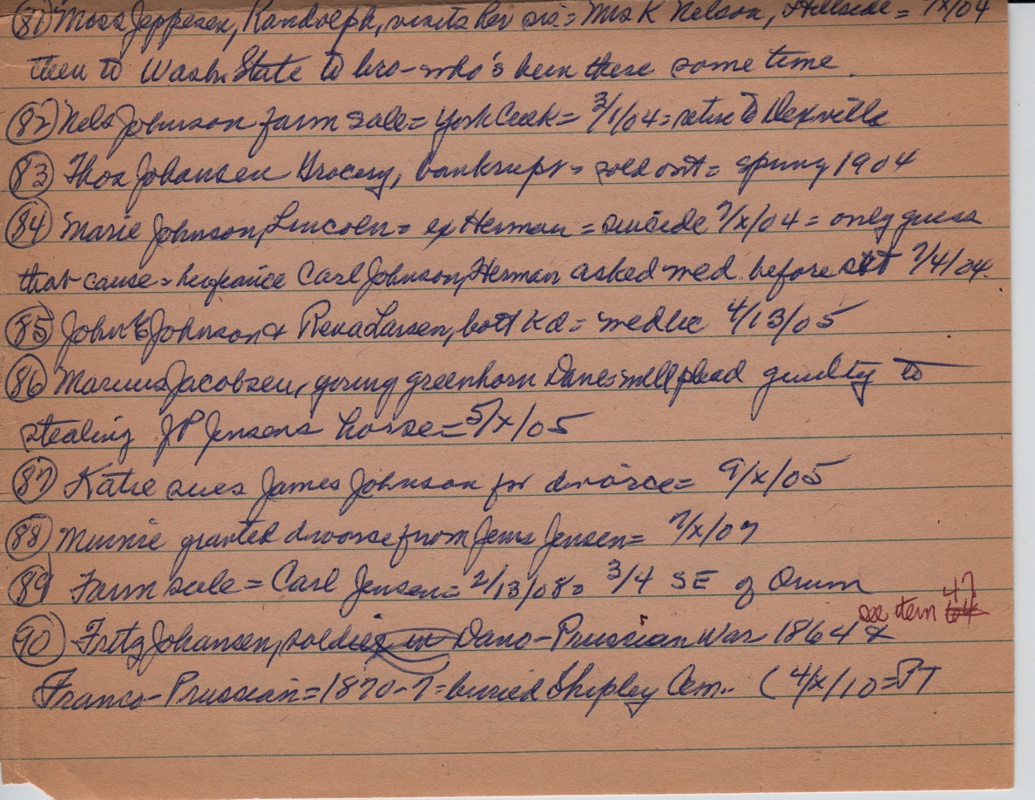 (81) Moss Jeppesen, Randolph, visits her sis = Mrs K Nelson, Hillside = 7/x/04
then to Wash. State to bro - who's been there some time.
(82) Nels Johnson farm sale = York Creek = 3/1/04 = return to
(83) Thos Johansen Grocery, bankrupt = sold out = spring 1904
(84) Marie Johnson, Lincoln = ex Herman = suicide 7/x/04 = only guess
that cause = Carl Johnson, Herman asked med. before 7/4/04.
(85) John E Johnson & Rena Larsen, both Kd = wed lic 4/13/05
(86) Marius Jacobsen, young greenhorn Dane = will plead guilty to
stealing JP Jensens horse = 5/x/05
(87) Katie sues James Johnson for divorce = 9/x/05
(88) Minnie granted divorce from Jens Jensen = 7/x/07
(89) Farm sale = Carl Jensen = 2/13/08 = 3/4 SE of Orum
see item 47
(90) Fritz Johansen, soldier in Dano-Prussian War 1864 &
Franco-Prussian = 1870-7 = buried Shipley Cem. (4/x/10 = PT